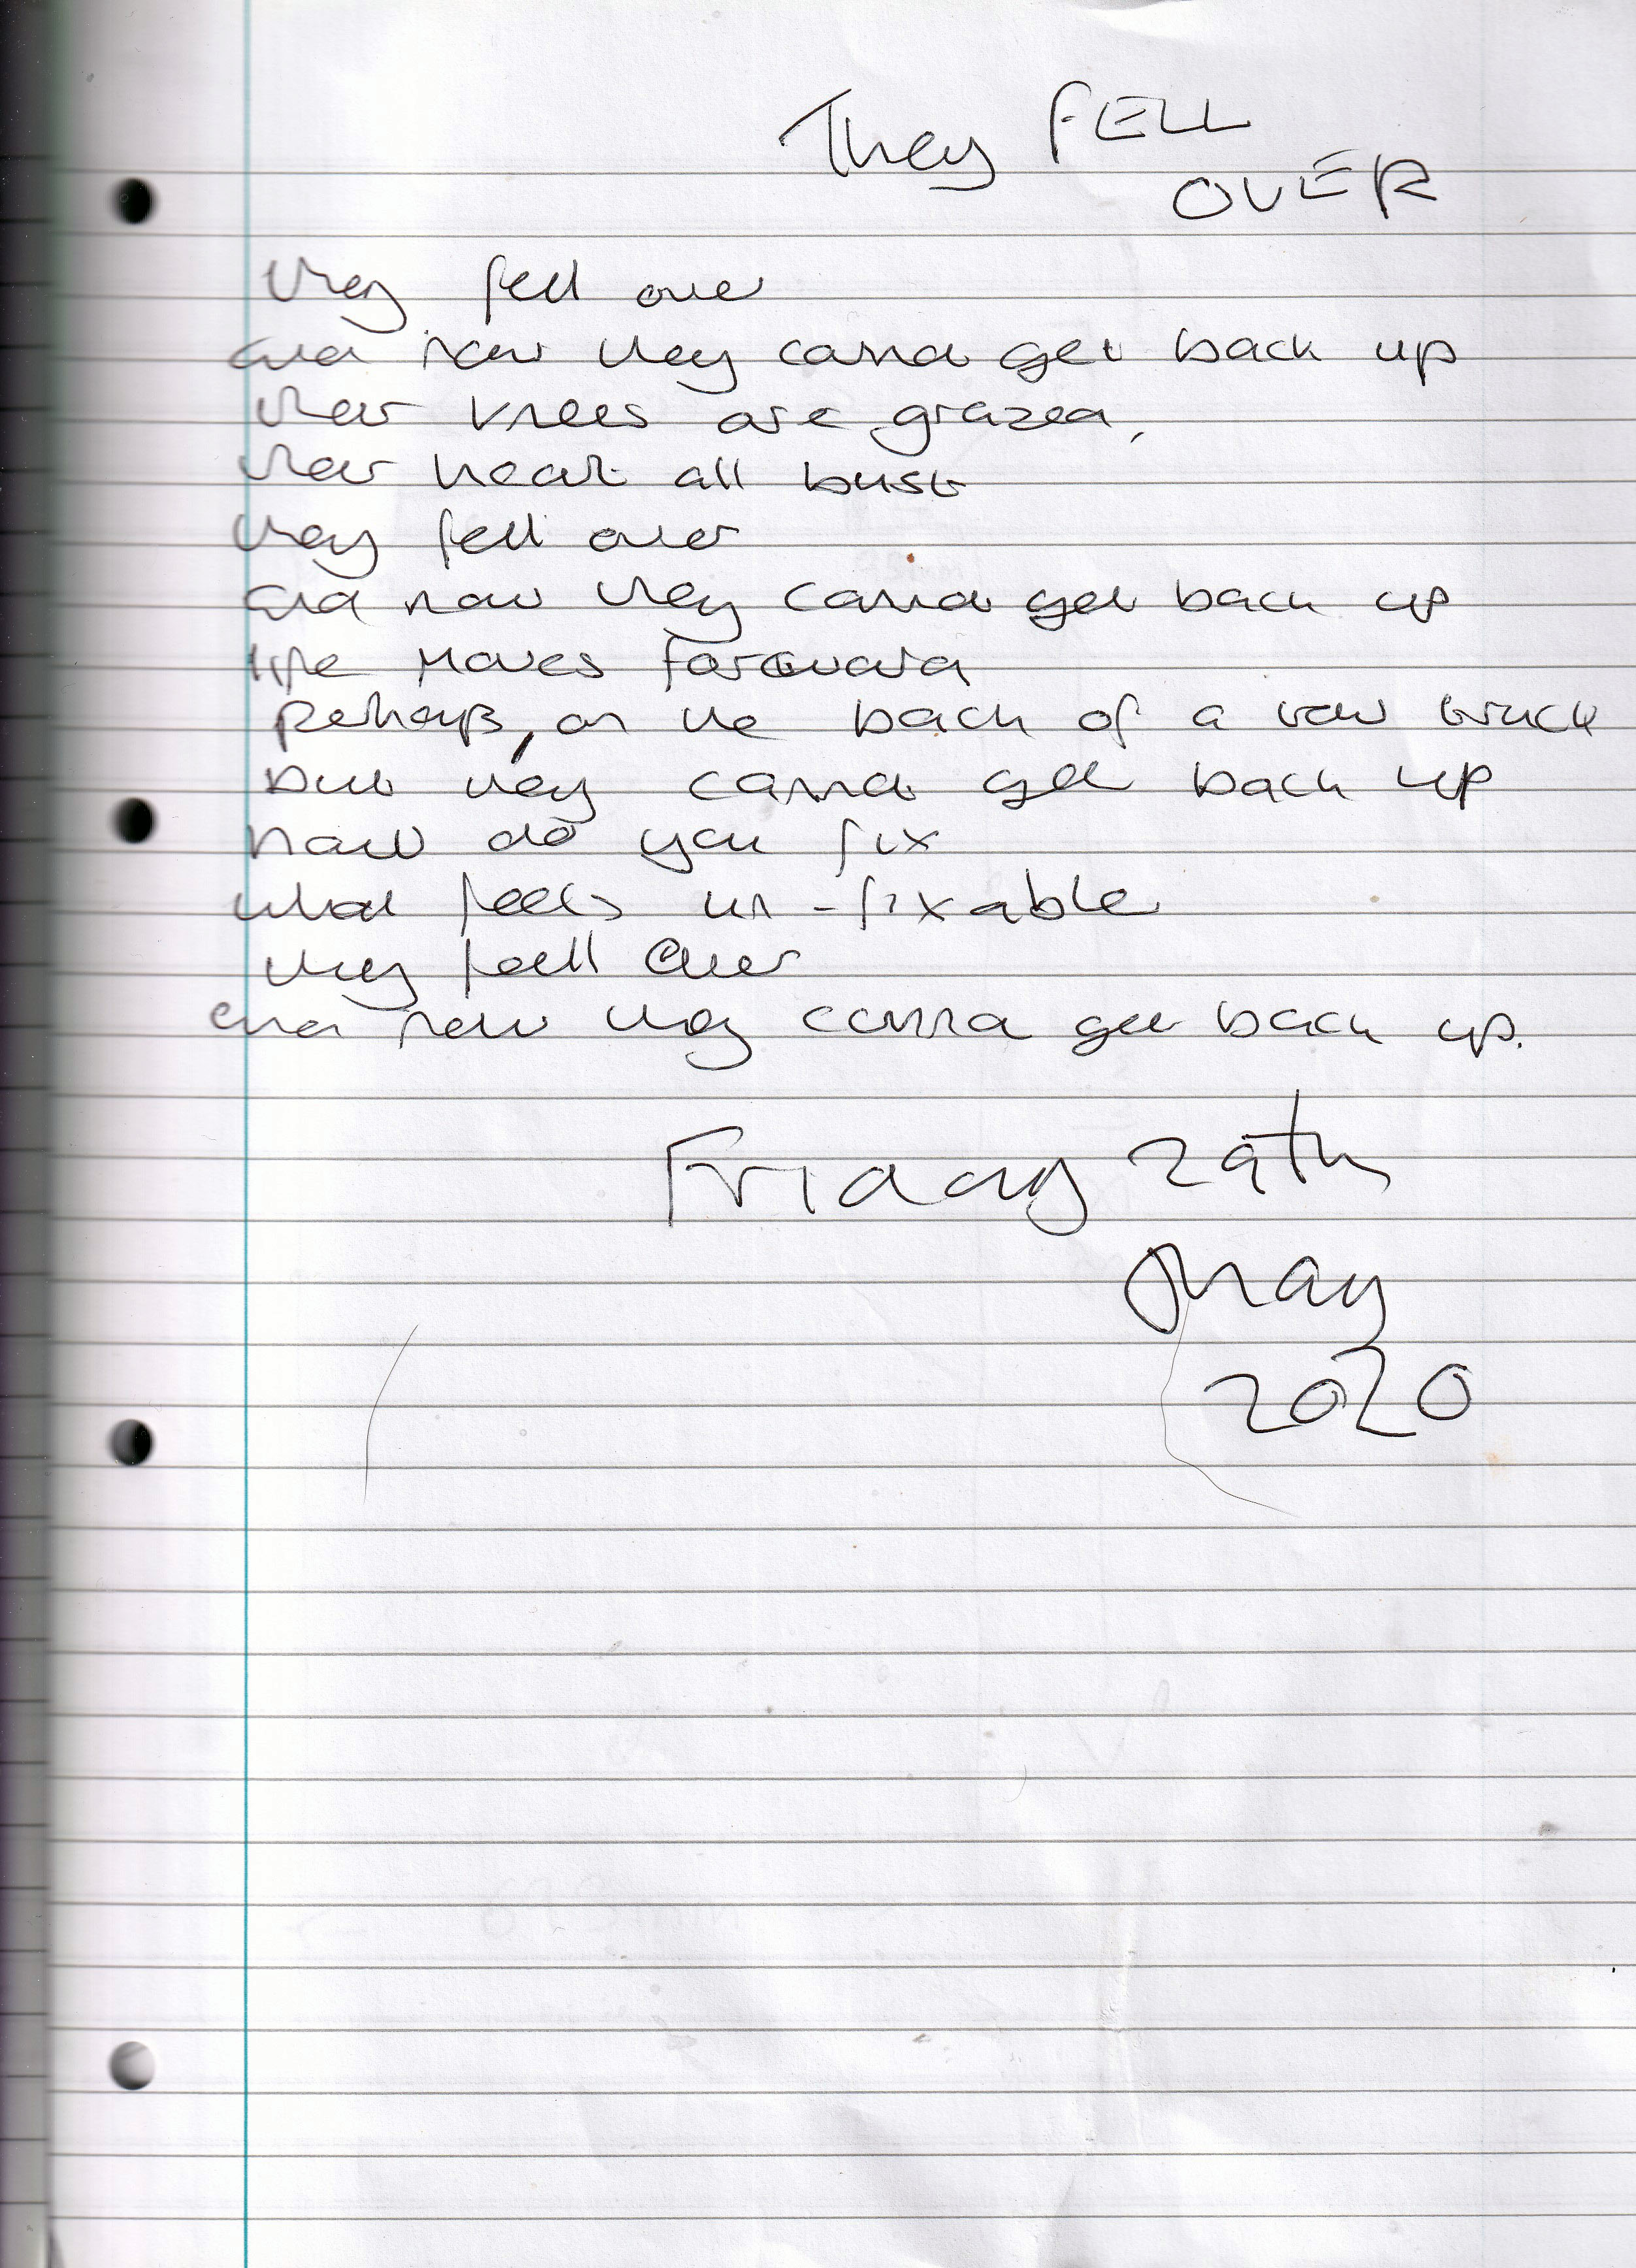 They FELL
OVER
they fell over
and now they canna get back up
their knees are grazed,
their heart all bust
they fell over
and now they canna get back up
life moves forward
perhaps, on the back of a tow truck
but they canna get back up
how do you fix
what feels un-fixable
they fell over
and now they canna get back up.
Friday 29th
May
2020